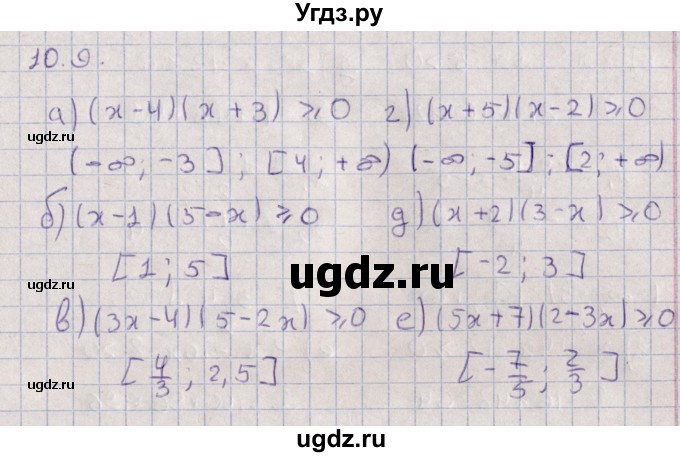 Угдз.ру
10.9.
а) (x-4)(x+3) ⩾0 г) (x+5)(x-2) ⩾0
(-∞; -3]; [4; +∞) (-∞; -5]; [2; +∞)
б) (x-1)(5-x) ⩾0 д) (x+2)(3-x) ⩾0
[1; 5] [-2; 3]
в) (3x-4)(5-2x) ⩾0 е) (5x+7)(2-3x) ⩾0
[4/3; 2,5] [-7/5; 2/3]
ugdz.ru
ugdz.ru
ugdz.ru
ugdz.ru
ugdz.ru
ugdz.ru
ugdz.ru
ugdz.ru